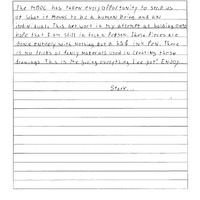 The MDOC has taken every opportunity to steal us
of what it means to be a human being and an
individual. This art work is my attempt at holding onto
hope that I am still in fact a person. These pieces are
done entirely with nothing but a 55¢ ink pen. There
is no tricks or fancy materials used in creating these
drawings. This is me giving everything I've got! Enjoy.
Stark...